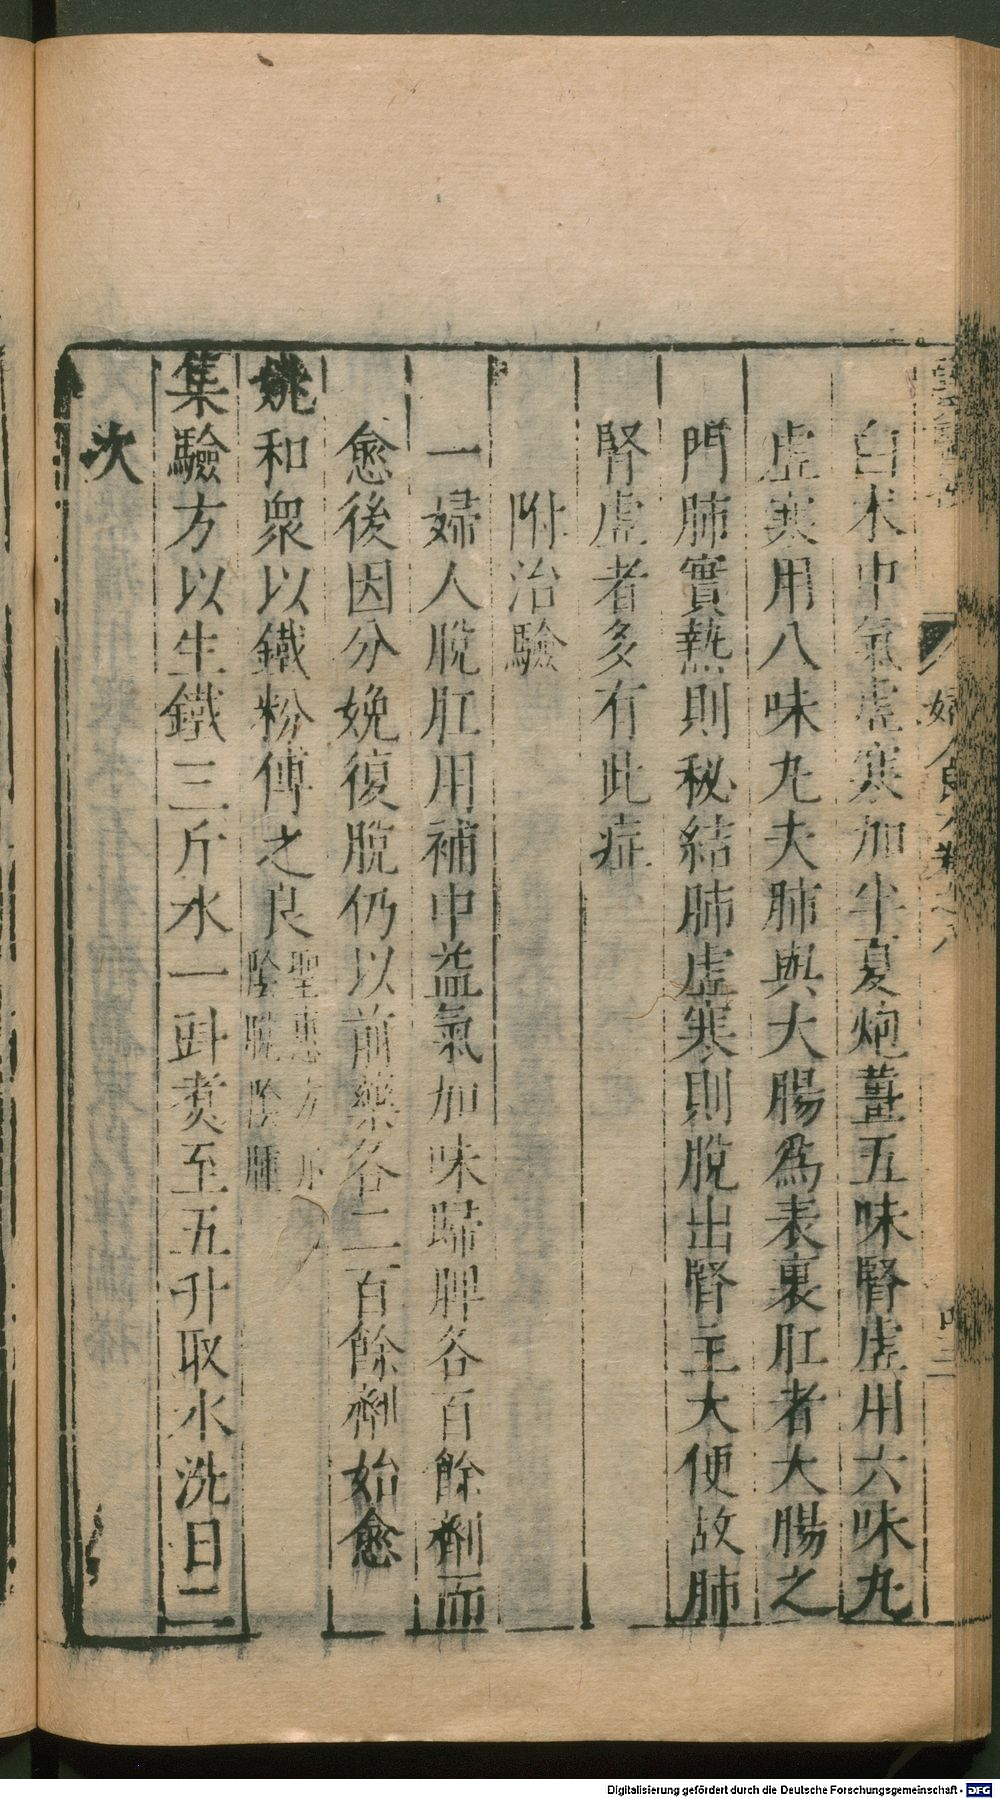 白朮中氣虛寒加半夏炮薑五味腎虛用六味丸
虛寒用八味丸夫肺與大腸爲表裏肛者大腸之
門肺實熱則秘結肺虛寒則脫出腎主大便故肺
腎虛者多有此症
附治驗
一婦人脫肛用補中益氣加味歸脾各百餘劑而
愈後因分娩復脫仍以前藥各二百餘劑始愈
姚和衆以鐵粉傅之良聖惠方亦
陰脫陰腫
集驗方以生鐵三斤水一㪷煮至五升取水洗日二
次
婦人良方卷之八
Digitalisierung gefördert durch die Deutsche Forschungsgemeinschaft - DFG